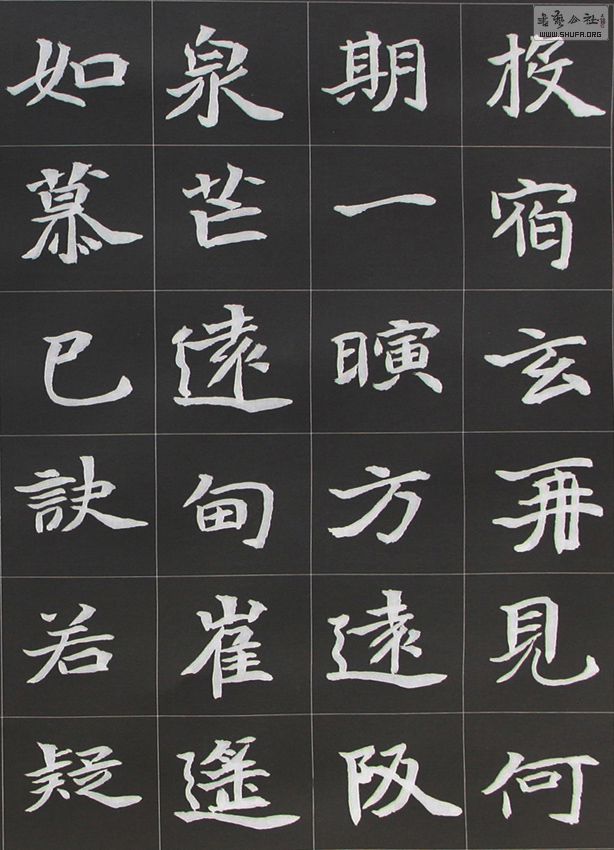 書藝公社
WWW.SHUFA.ORG
投宿玄再見何
期一暝方遠阪
泉芒遠甸崔遙
如慕已訣若疑